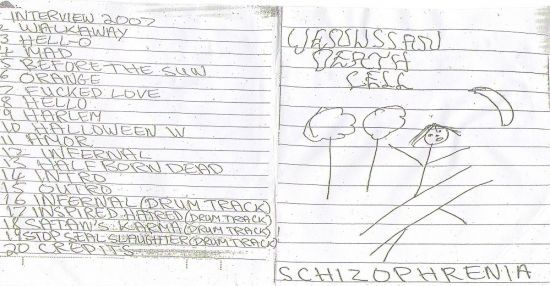 INTERVIEW 2007
2 WALKAWAY
3 HELL-O
4 MAD
5 BEFORE THE SUN
6 ORANGE
7 FUCKED LOVE
8 HELLO
9 HARLEM
10 HALLOWEEN
11 AMOR
12 INFERNAL
13 BORN DEAD
14 INTRO
15 OUTRO
16 INFERNAL (DRUM TRACK)
17 INSPIRED HATRED (DRUM TRACK)
18 SATAN'S KARMA (DRUM TRACK)
19 STOP SEAL SLAUGHTER (DRUM TRACK)
20 CREDITS
VENUSSIAN
DEATH
CELL
SCHIZOPHRENIA